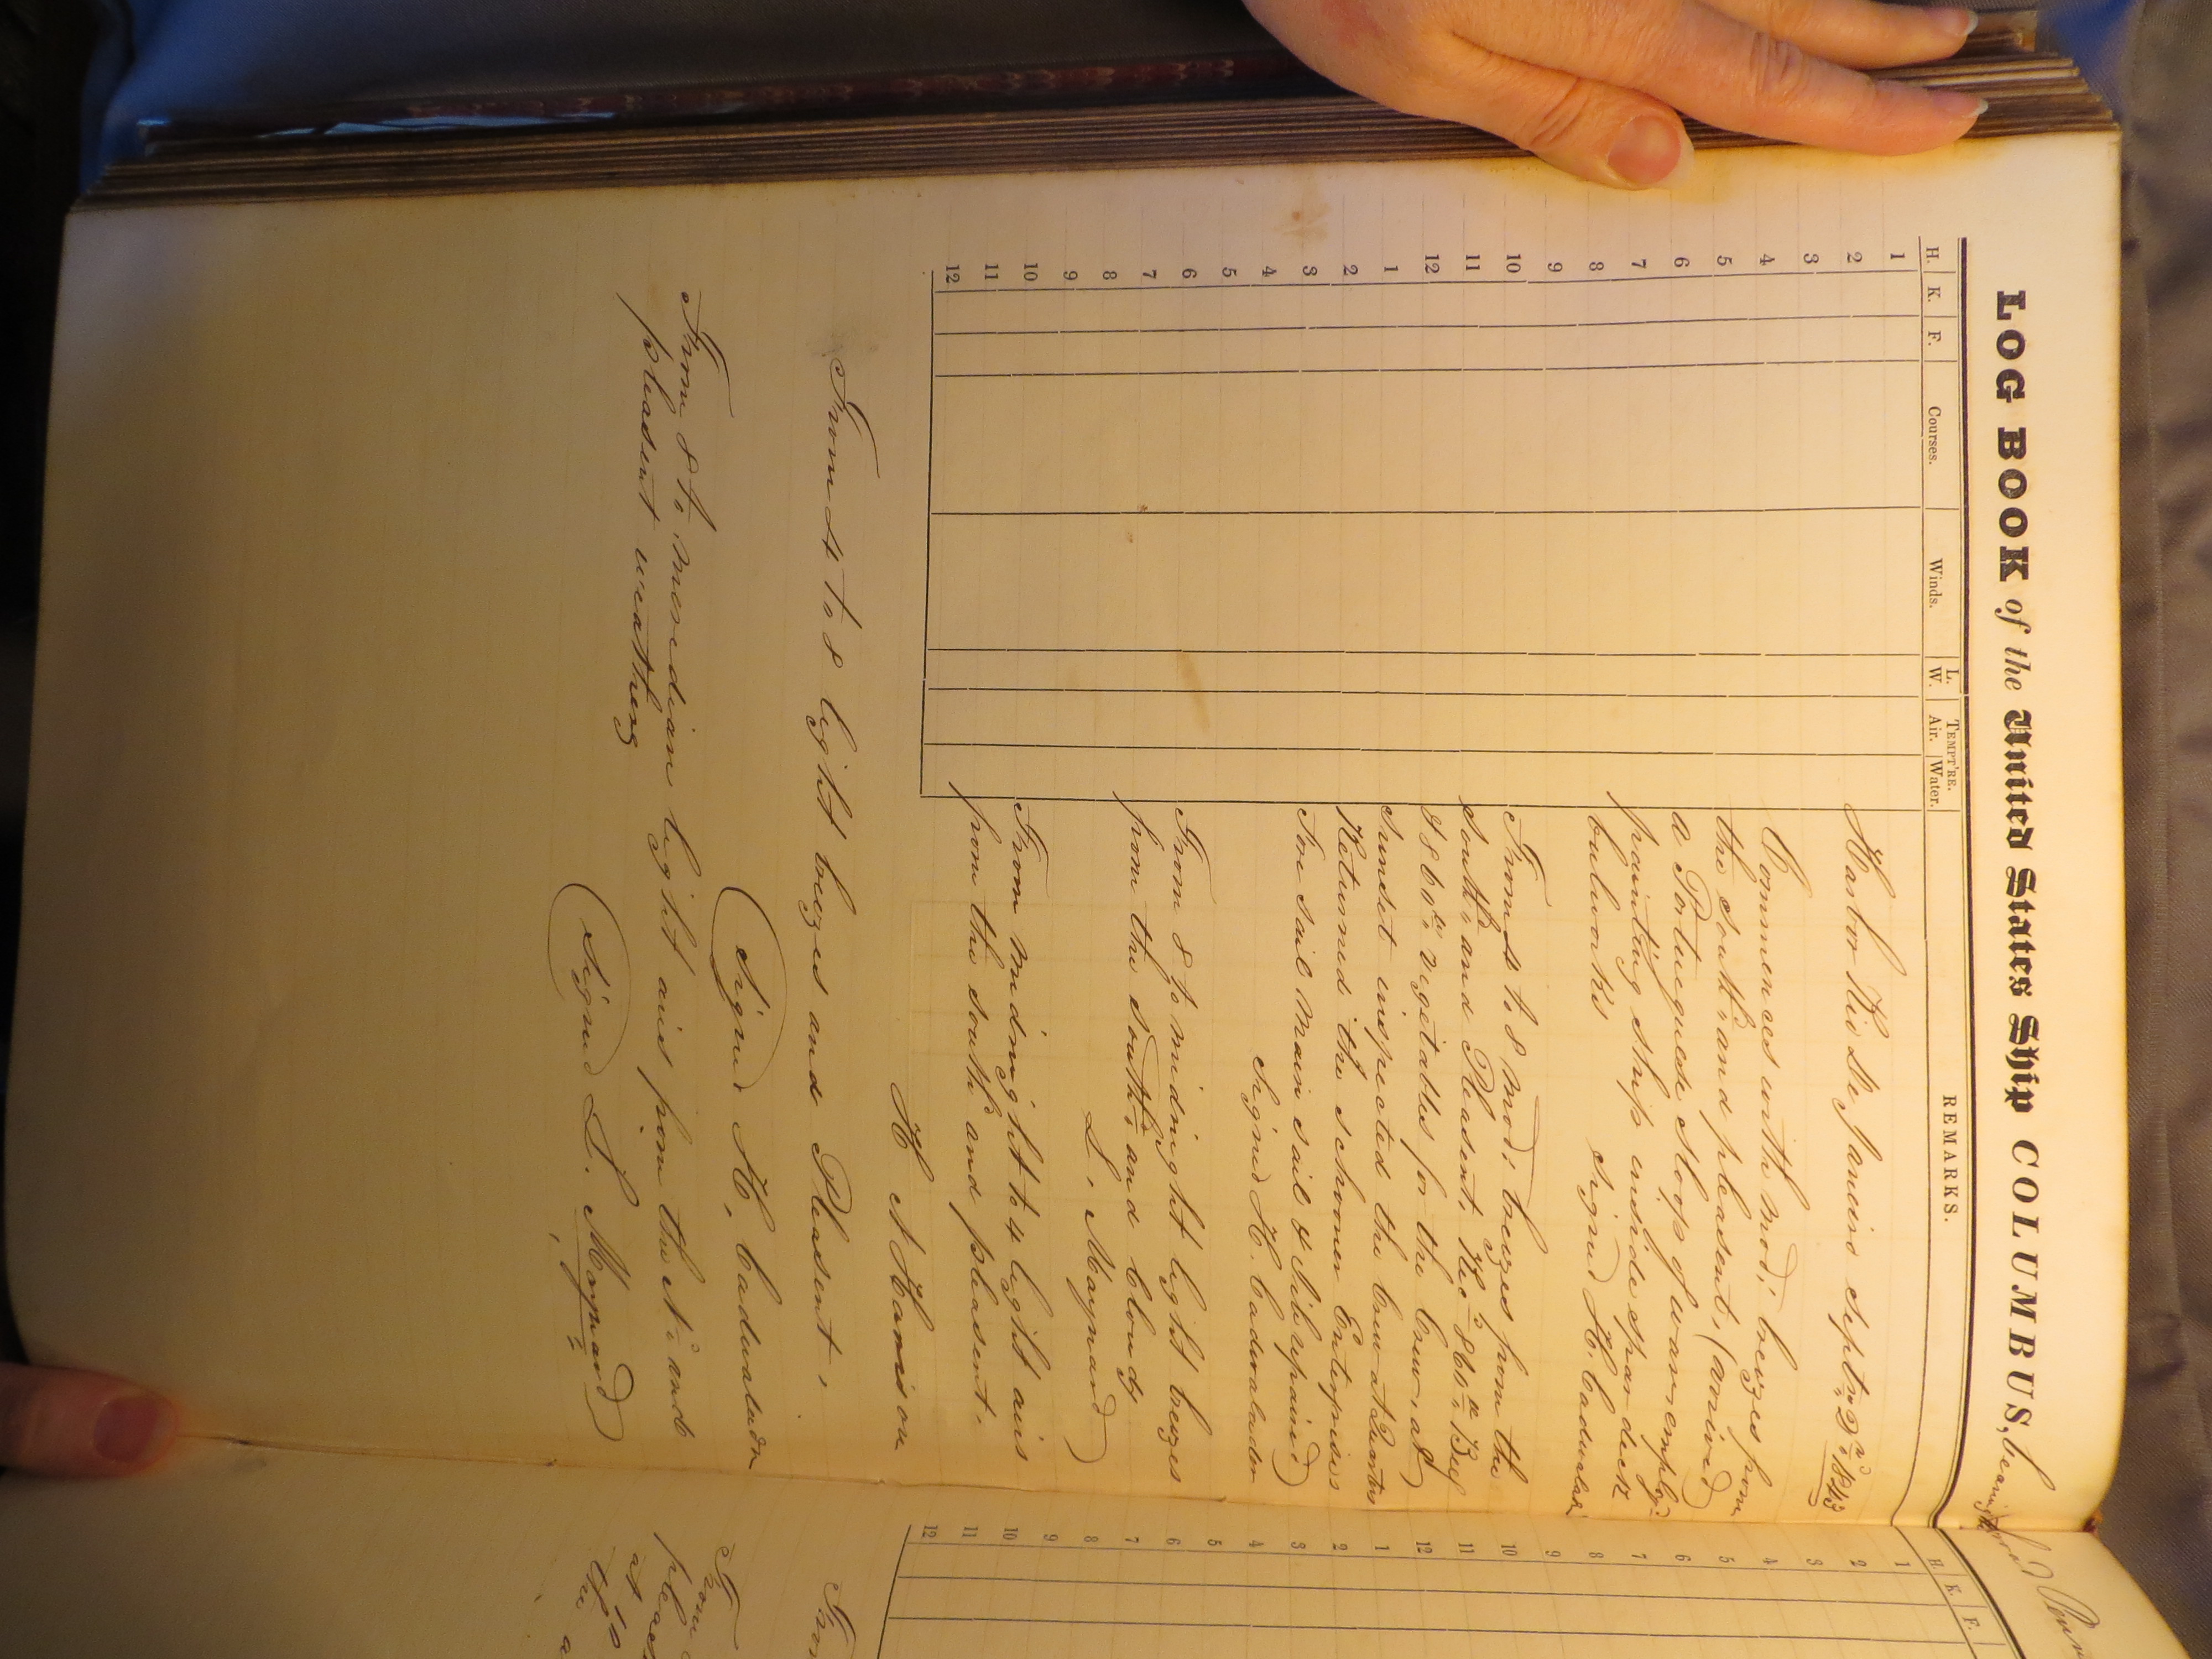 LOG BOOK of the United States Ship COLUMBUS, bearing the
H. K. F. Courses. Winds. L. W. TEMPT'RE. Air. Water. REMARKS.
1
2
3
4
5
6
7
8
9
10
11
12
1
2
3
4
5
6
7
8
9
10
11
12
Harbor Rio de Janeiro Septr 1843
Commences with mod: breezes from
the South and pleasent, (arrived
a Portuguese Sloop of war employ
painting ship inside spar deck
bulwarks
Signed H. Cadwalader
From 4 to 8 mod: breezes from the
South and Pleasent, Rec 860 lbs Beef
& 860 lbs vegetables for the Crew, at
sunset inspected the Crew at Quarters
Returned the schooner Enterprises
Fore sail Main sail & Jib repaired
Signed H. Cadwalader
From 8 to midnight light breezes
from the South and Cloudy
L. Maynard
From midnight to 4 light airs
from the South and pleasent.
H N Harrison
From 4 to 8 light breezes and Pleasent,
Signed H. Cadwalader
From 8 to meredian light airs from the N and
pleasent weather
Signed L. Maynard
H. K. F.
1
2
3
4
5
6
7
8
9
10
11
12
1
2
3
4
5
6
7
8
9
10
11
12
From
at
the a